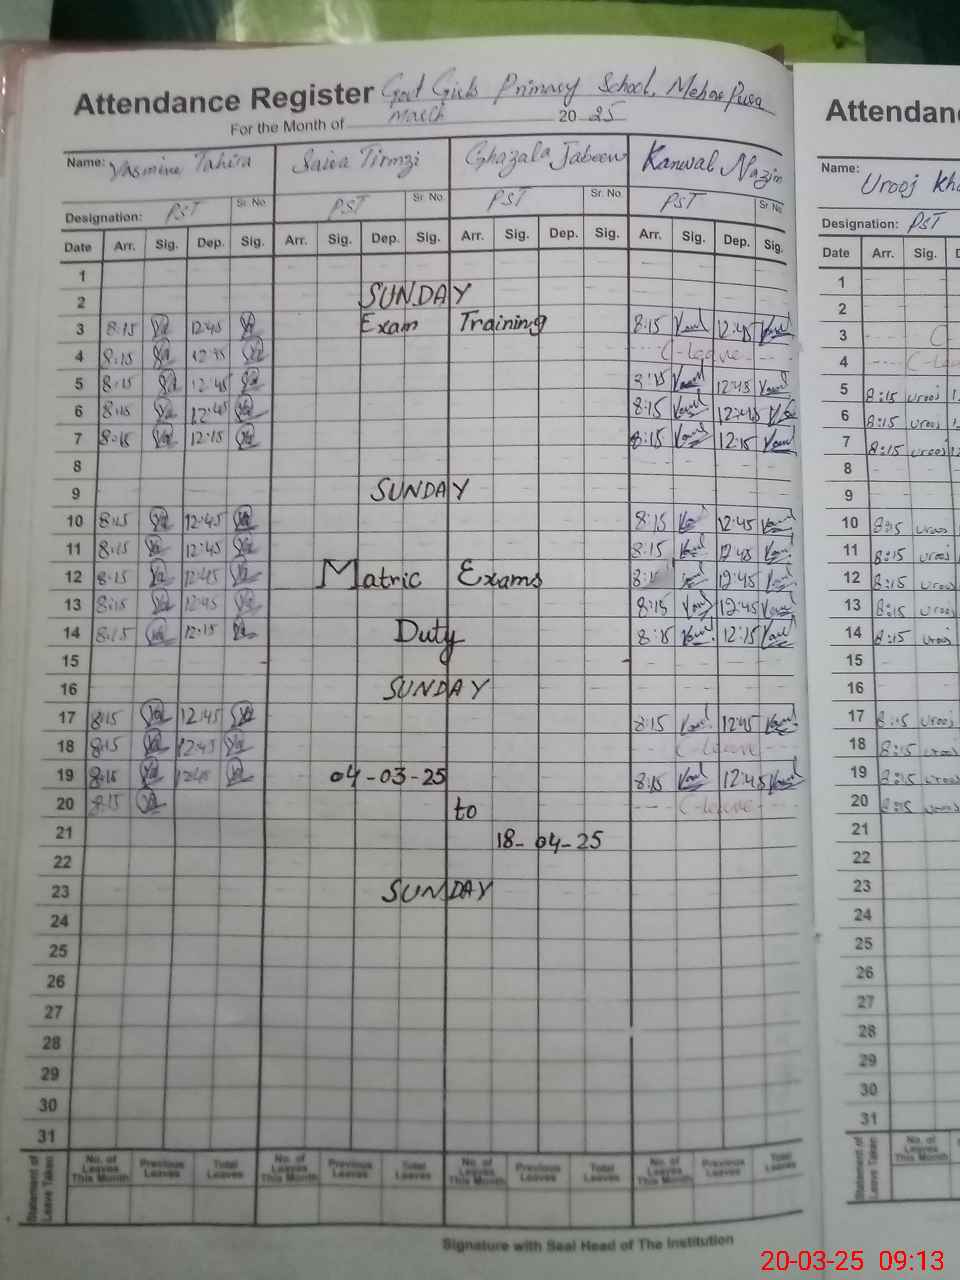 Attendance Register Govt Girls Primary School, Mehar Pura
For the Month of March 20 25
Name: Yasmine Tahira Saira Tirmzi Ghazala Jabeen Kanwal Nazim
Designation: PST Sr. No. PST Sr. No. PST Sr. No. PST Sr. No.
Date Arr. Sig. Dep. Sig. Arr. Sig. Dep. Sig. Arr. Sig. Dep. Sig. Arr. Sig. Dep. Sig.
1
2 SUNDAY
3 8:15 12:45 Exam Training 8:15 12:45
4 8:15 12:45 C-leave
5 8:15 12:45 8:15 12:45
6 8:15 12:45 8:15 12:45
7 8:15 12:15 8:15 12:15
8
9 SUNDAY
10 8:15 12:45 8:15 12:45
11 8:15 12:45 8:15 12:45
12 8:15 12:45 Matric Exams 8:15 12:45
13 8:15 12:45 8:15 12:45
14 8:15 12:15 Duty 8:15 12:15
15
16 SUNDAY
17 8:15 12:45 8:15 12:45
18 8:15 12:45 C-leave
19 8:15 12:45 04-03-25 8:15 12:45
20 8:15 to C-leave
21 18-04-25
22
23 SUNDAY
24
25
26
27
28
29
30
31
Statement of Leave Taken
No. of Leaves This Month Previous Leaves Total Leaves No. of Leaves This Month Previous Leaves Total Leaves No. of Leaves This Month Previous Leaves Total Leaves No. of Leaves This Month Previous Leaves Total Leaves
Signature with Seal Head of The Institution
Attendanc
Name: Urooj Kha
Designation: PST
Date Arr. Sig. D
1
2
3 C
4 C-lea
5 8:15 Urooj
6 8:15 Urooj
7 8:15 Urooj
8
9
10 8:15 Urooj
11 8:15 Urooj
12 8:15 Urooj
13 8:15 Urooj
14 8:15 Urooj
15
16
17 8:15 Urooj
18 8:15 Urooj
19 8:15 Urooj
20 8:15 Urooj
21
22
23
24
25
26
27
28
29
30
31
Statement of Leave Taken
No. of Leaves This Month
20-03-25 09:13